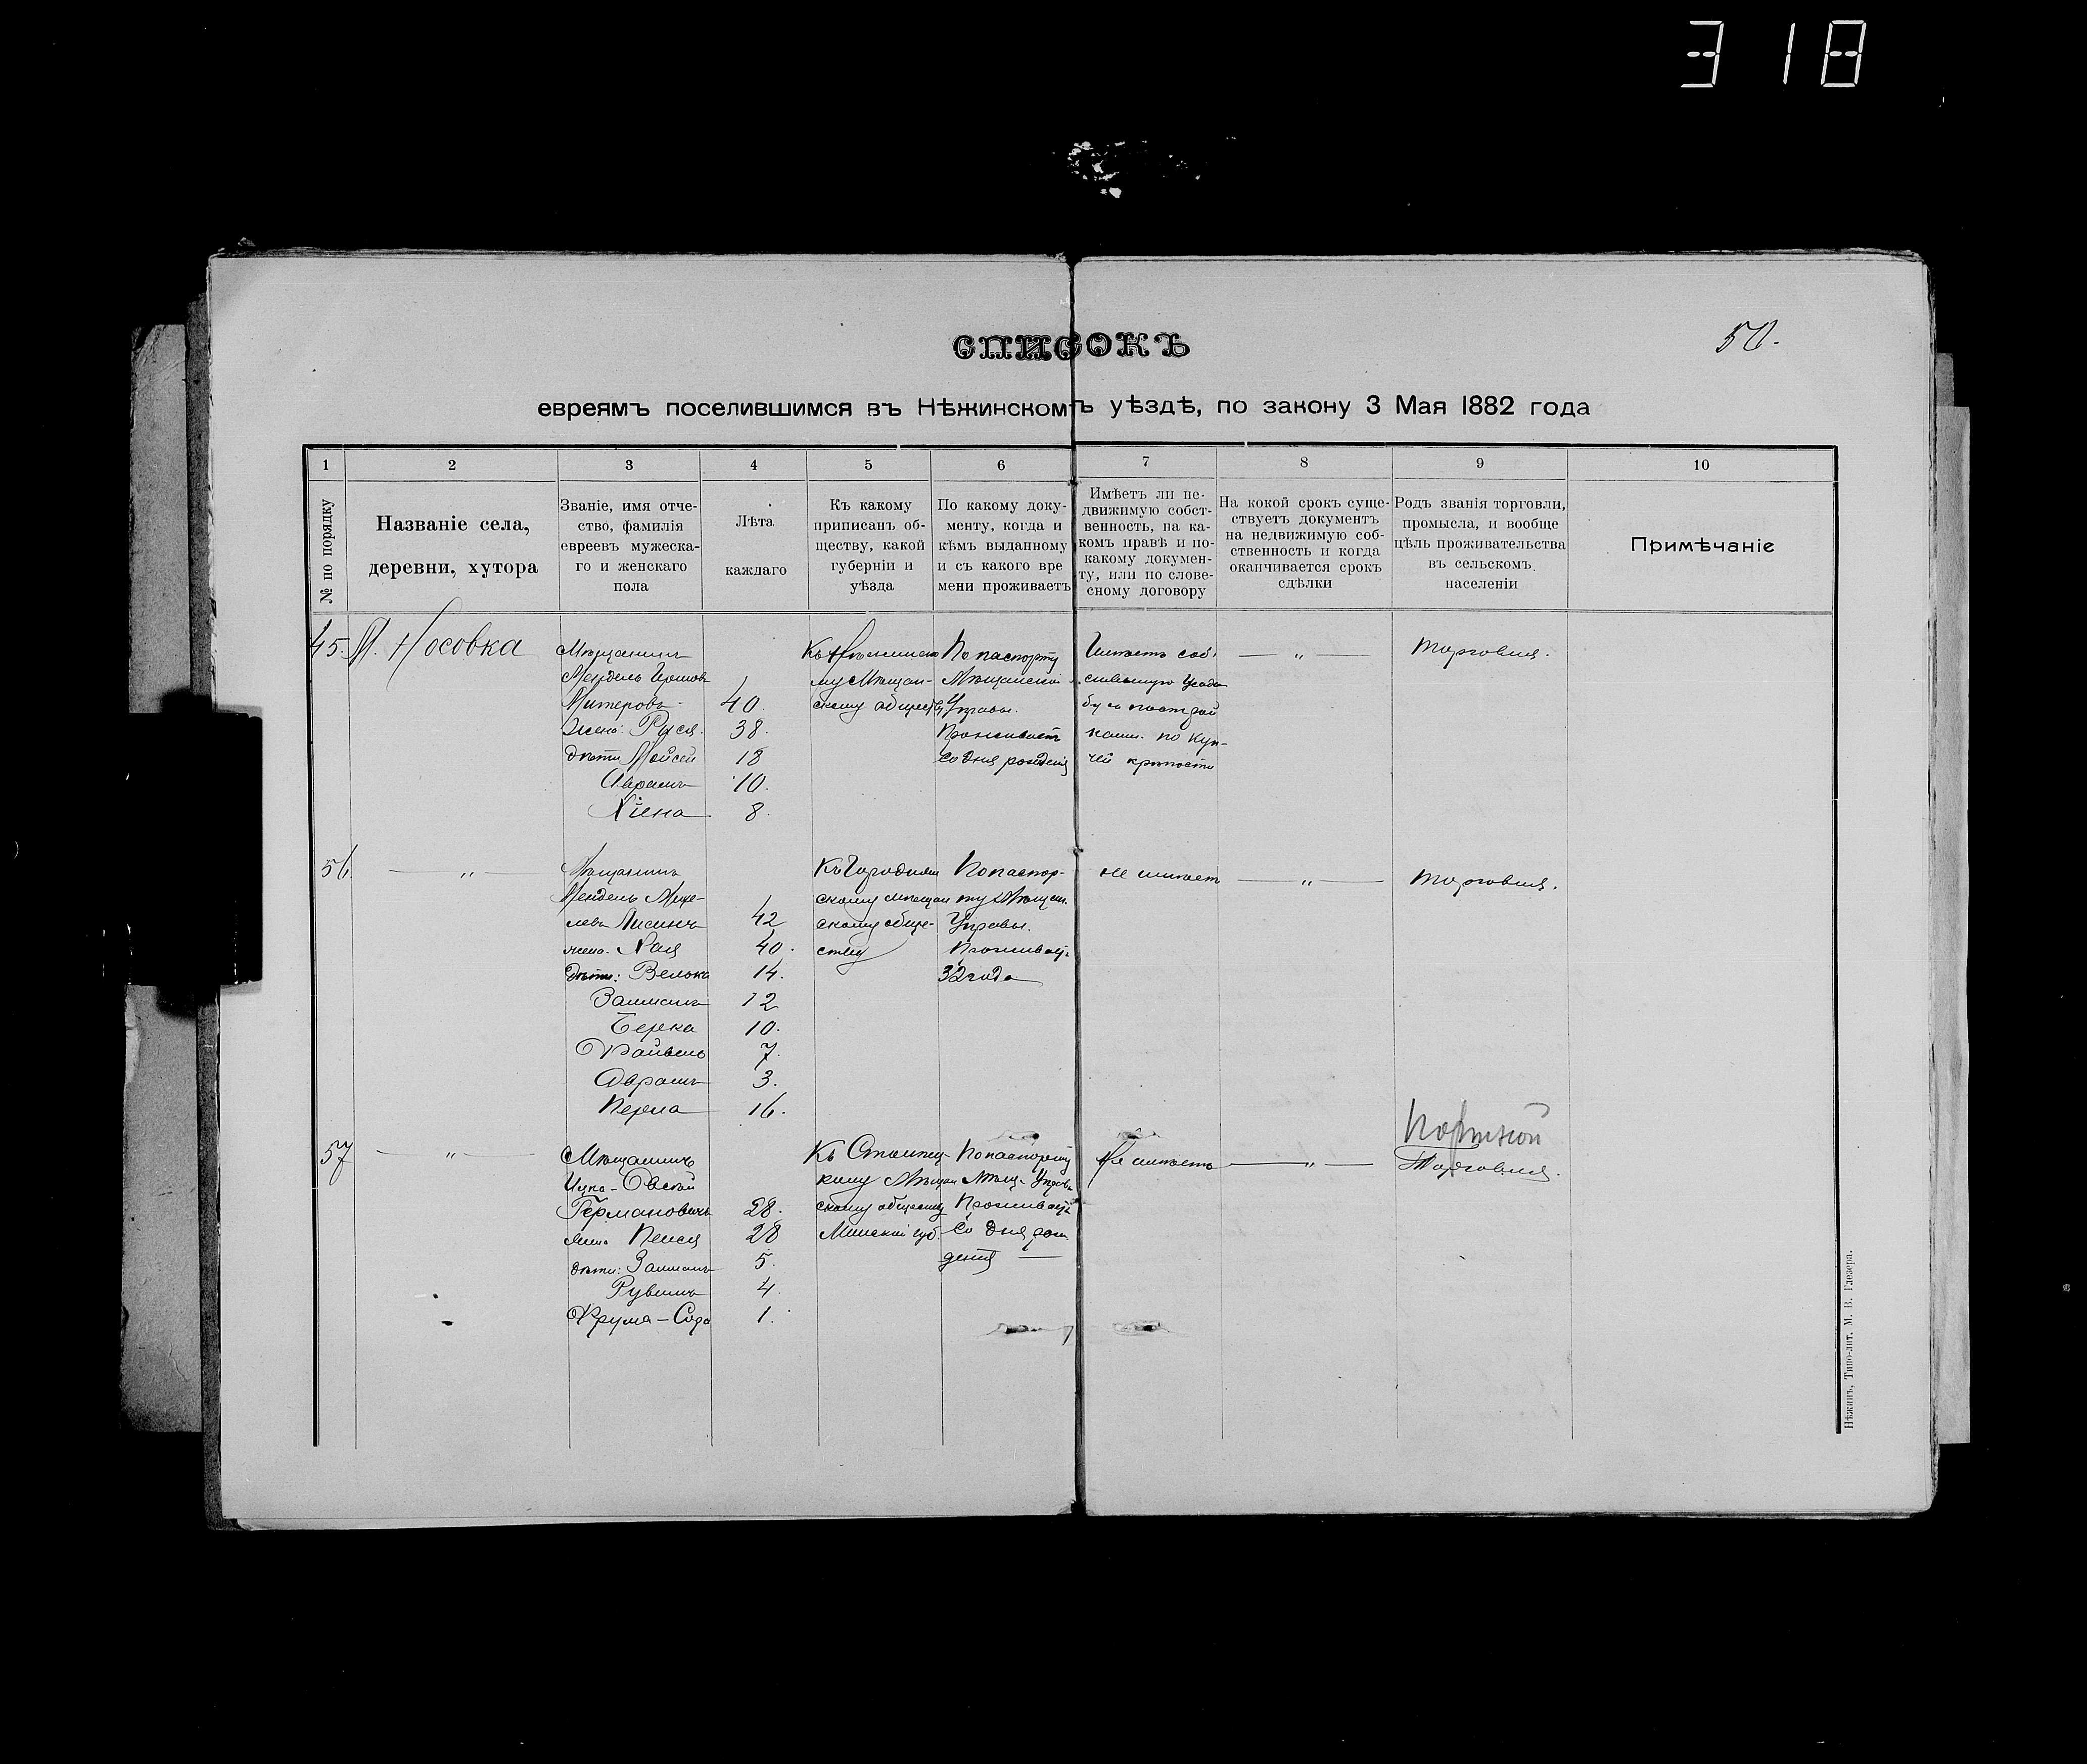 318
50.
СПИСОКЪ
евреямъ поселившимся въ Нѣжинскомъ уѣздѣ, по закону 3 Мая 1882 года
1 2 3 4 5 6 7 8 9 10
№ по порядку
Названіе села,
деревни, хутора
Званіе, имя отче-
ство, фамилія
евреевъ мужеска-
го и женскаго
пола
Лѣта
каждаго
Къ какому
приписанъ об-
ществу, какой
губерніи и
уѣзда
По какому доку-
менту, когда и
кѣмъ выданному
и съ какого вре
мени проживаетъ
Имѣетъ ли не-
движимую собст-
венность, на ка-
комъ правѣ и по-
какому докумен-
ту, или по слове-
сному договору
На кокой срокъ суще-
ствуетъ документъ
на недвижимую соб-
ственность и когда
оканчивается срокъ
сдѣлки
Родъ званія торговли,
промысла, и вообще
цѣль проживательства
въ сельскомъ
населеніи
Примѣчаніе
45. М. Носовка
Мѣщанинъ
Мендель
Митеровъ 40.
жена: Рися. 38.
дѣти Мойсей 18
Аврамъ 10.
Хіена 8.
Къ Нѣжинско
му Мѣщан-
скому обществу
По паспорту
Мѣщанской
Управы.
Проживаетъ
Со дня рожденія
Имѣетъ соб
ственную Усадь
бу с построй
ками по Куп-
чей крѣпости
— „ —
Торговля.
56. — „ —
Мѣщанинъ
Мендель Михе-
левъ Лисинъ 42
жена. Хая 40.
дѣти: Велька 14.
Залманъ 12
Берка 10.
Файвель 7.
Аврамъ 3.
Перла 16.
Къ Городнян
скому мѣщан
скому обще-
ству
По паспор-
ту Мѣщан.
Управы.
Проживаетъ
32 года
не имѣетъ
— „ —
Торговля.
57 — „ —
Мѣщанинъ
Ицко-
Германовичъ 28.
жена Пеися 28
дѣти: Залманъ 5.
Рувинъ 4.
Фрума-Сора 1.
Къ
кому Мѣщан
скому обществу
Минской губ.
По паспорту
Мѣщ. Управы
Проживаетъ
Со дня рож
денія —
Не имѣетъ
— „ —
Портной
Торговля.
Нѣжинъ, Типо-лит. М. В. Глезера.